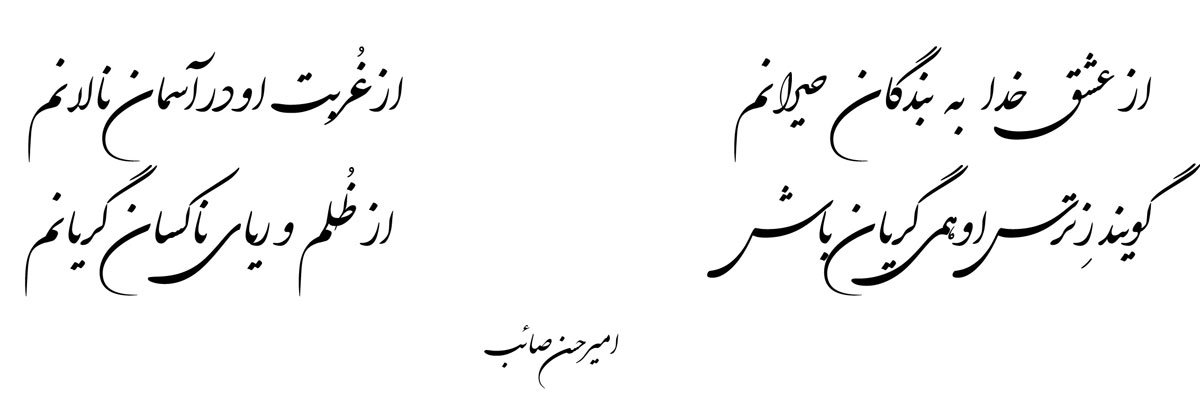 از عشق خدا به بندگان حیرانم
از غُربت او در آسمان نالانم
گویند زِ ترس او همی گریان باش
از ظُلم و ریای ناکسان گریانم
امیرحسن صائب